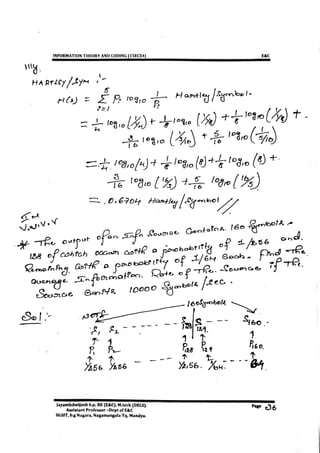 INFORMATION THEORY AND CODING (15EC54) E&C
|||ly.
HARTLEY/SYM :-
H(s) = 5 Σ i=1 Pi log10 1/Pi Hartley/Symbol.
= 1/4 log10 (1/1/4) + 1/8 log10 (1/1/8) + 1/8 log10 (1/1/8) +
3/16 log10 (1/3/16) + 5/16 log10 (1/5/16)
= 1/4 log10 (4) + 1/8 log10 (8) + 1/8 log10 (8) +
3/16 log10 (16/3) + 5/16 log10 (16/5)
= 0.6704 Hartley/Symbol //
V.V.V.V
* The output of an Infn Source Contains 160 Symbols
128 of which occurs with a probability of 1/256 and
Remaining with a probability of 1/64 Each. Find the
Average Information Rate of The Source If The
Source Emits 10000 Symbols/sec.
Sol:- 160 Symbols
S1 S2 - - - S128 S129 - - - S160
P1 P2 P128 P129 P160.
1/256 1/256 - - - 1/256. 1/64. - - -
Jayanthdwijesh h.p. BE (E&C), M.tech (DECS).
Assistant Professor –Dept of E&C
BGSIT, b.g Nagara, Nagamangala Tq, Mandya.
Page 36